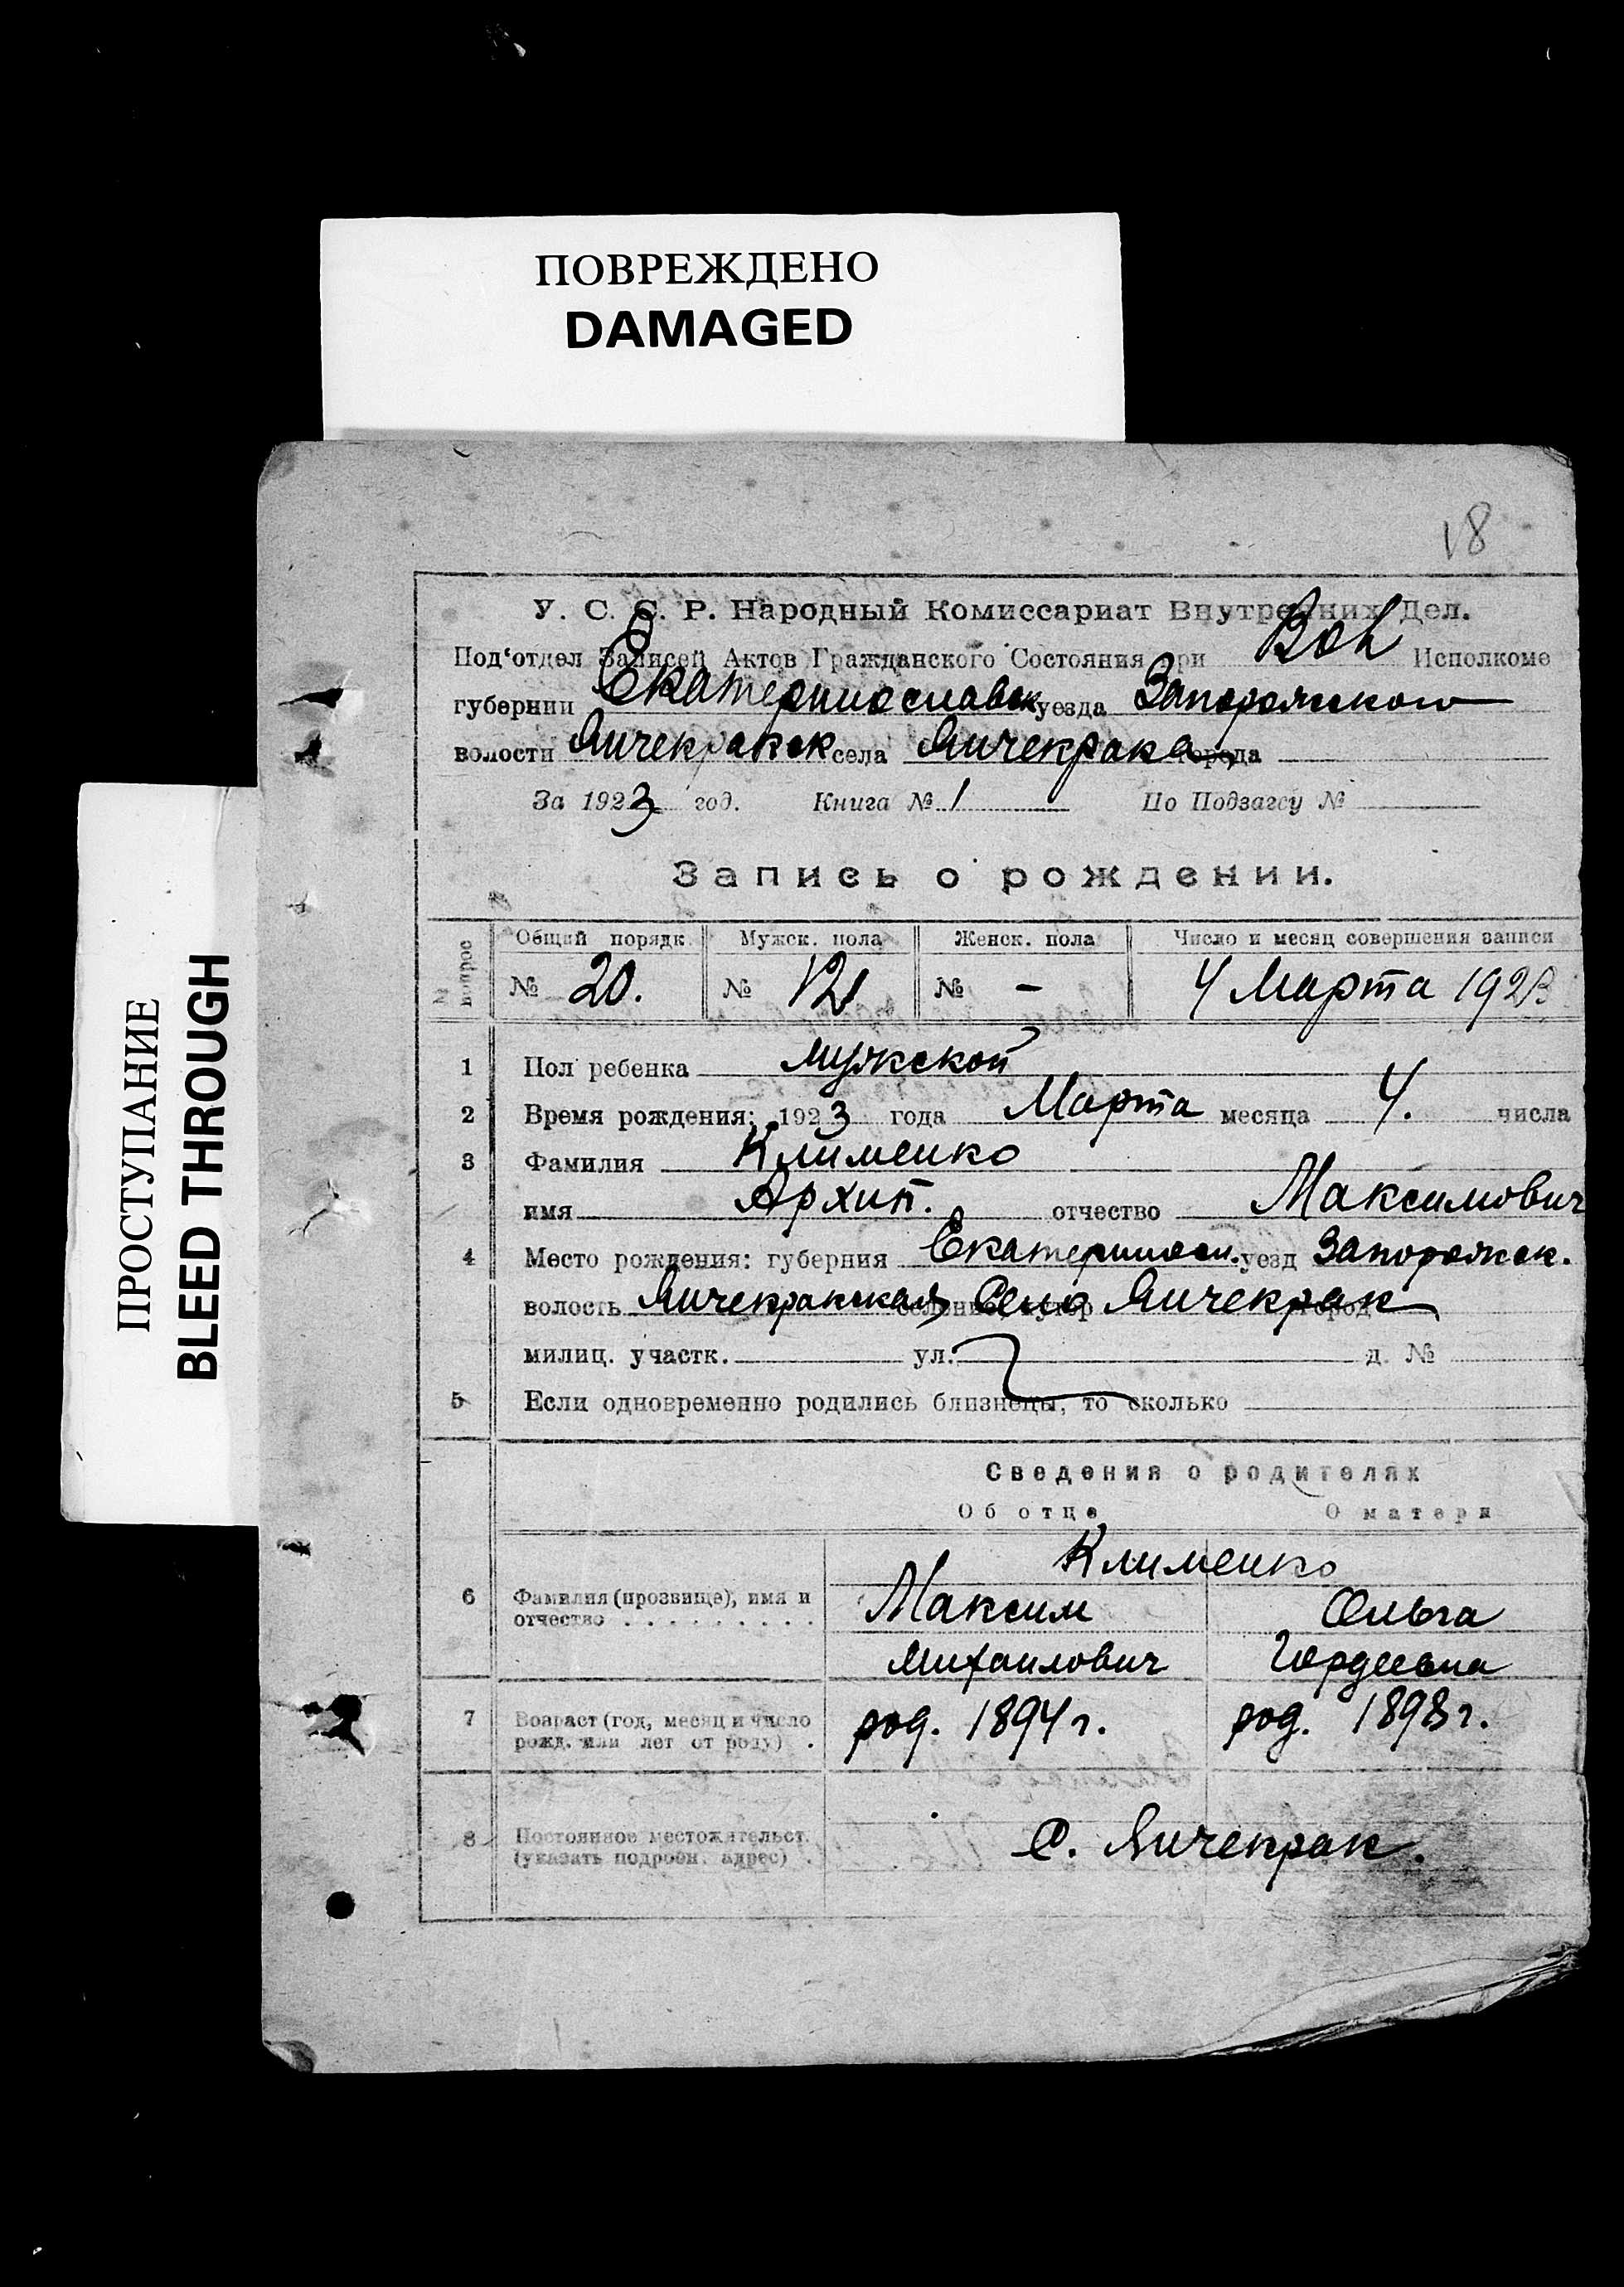 ПОВРЕЖДЕНО
DAMAGED
ПРОСТУПАНИЕ
BLEED THROUGH
18
У. С. С. Р. Народный Комиссариат Внутренних Дел.
Под‘отдел Записей Актов Гражданского Состояния при Вол Исполкоме
губернии Екатеринославск уезда Запорожского
волости Янчекракск села Янчекрака города
За 1923 год. Книга № 1 По Подзагсу №
Запись о рождении.
№ вопрос Общий порядк Мужск. пола Женск. пола Число и месяц совершения записи
№ 20. № 12 № - 4 Марта 1923
1 Пол ребенка мужской
2 Время рождения: 1923 года Марта месяца 4. числа
3 Фамилия Клименко
имя Архип. отчество Максимович
4 Место рождения: губерния Екатеринosл. уезд Запорожск.
волость Янчекракская селение, хутор Село Янчекрак город
милиц. участк. ул. д. №
5 Если одновременно родились близнецы, то сколько
Сведения о родителях
Об отце О матери
Клименко
6 Фамилия (прозвище), имя и Максим Ольга
отчество . . . . . . . . .
Михаилович Гордеевна
7 Возраст (год, месяц и число род. 1894 г. род. 1898 г.
рожд. или лет от роду) .
8 Постоянное местожительст. с. Янчекрак.
(указать подробн. адрес) .